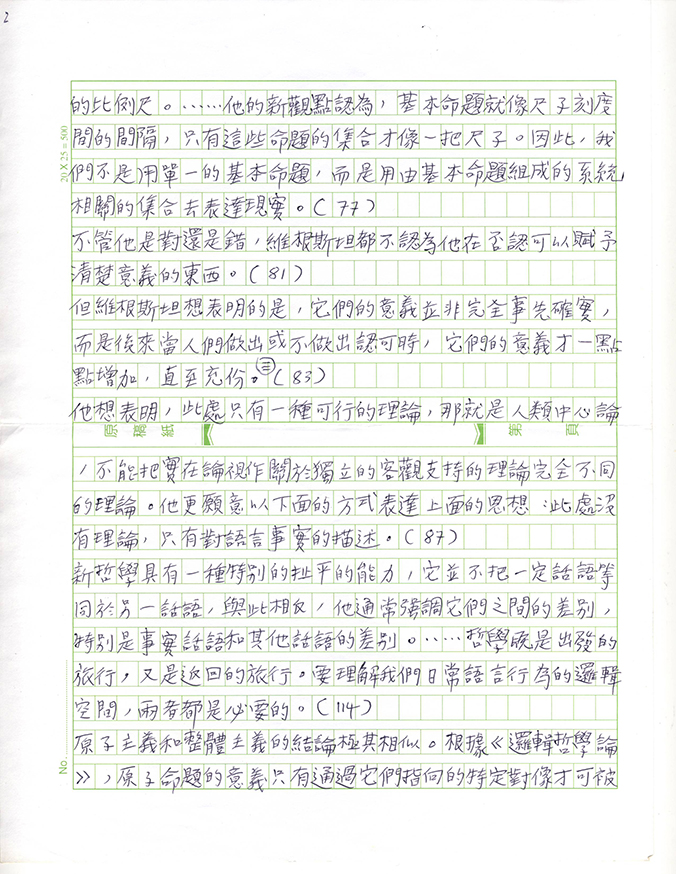 2
的比例尺。……他的新觀點認為，基本命題就像尺子刻度
間的間隔，只有這些命題的集合才像一把尺子。因此，我
們不是用單一的基本命題，而是用由基本命題組成的系統
相關的集合去表達現實。(77)
不管他是對還是錯，維根斯坦都不認為他在否認可以賦予
清楚意義的東西。(81)
但維根斯坦想表明的是，它們的意義並非完全事先確實，
而是後來當人們做出或不做出認可時，它們的意義才一點
點增加，直至充份。㊂(83)
他想表明，此處只有一種可行的理論，那就是人類中心論
原稿紙 第 頁
，不能把實在論視作關於獨立的客觀支持的理論完全不同
的理論。他更願意以下面的方式表達上面的思想：此處沒
有理論，只有對語言事實的描述。(87)
新哲學具有一種特別的扯平的能力，它並不把一定話語等
同於另一話語，與此相反，他通常強調它們之間的差別，
特別是事實話語和其他話語的差別。……哲學既是出發的
旅行，又是返回的旅行。要理解我們日常語言行為的邏輯
空間，兩者都是必要的。(114)
原子主義和整體主義的結論極其相似。根據《邏輯哲學論
》，原子命題的意義只有通過它們指向的特定對像才可被
20 X 25 = 500
No.